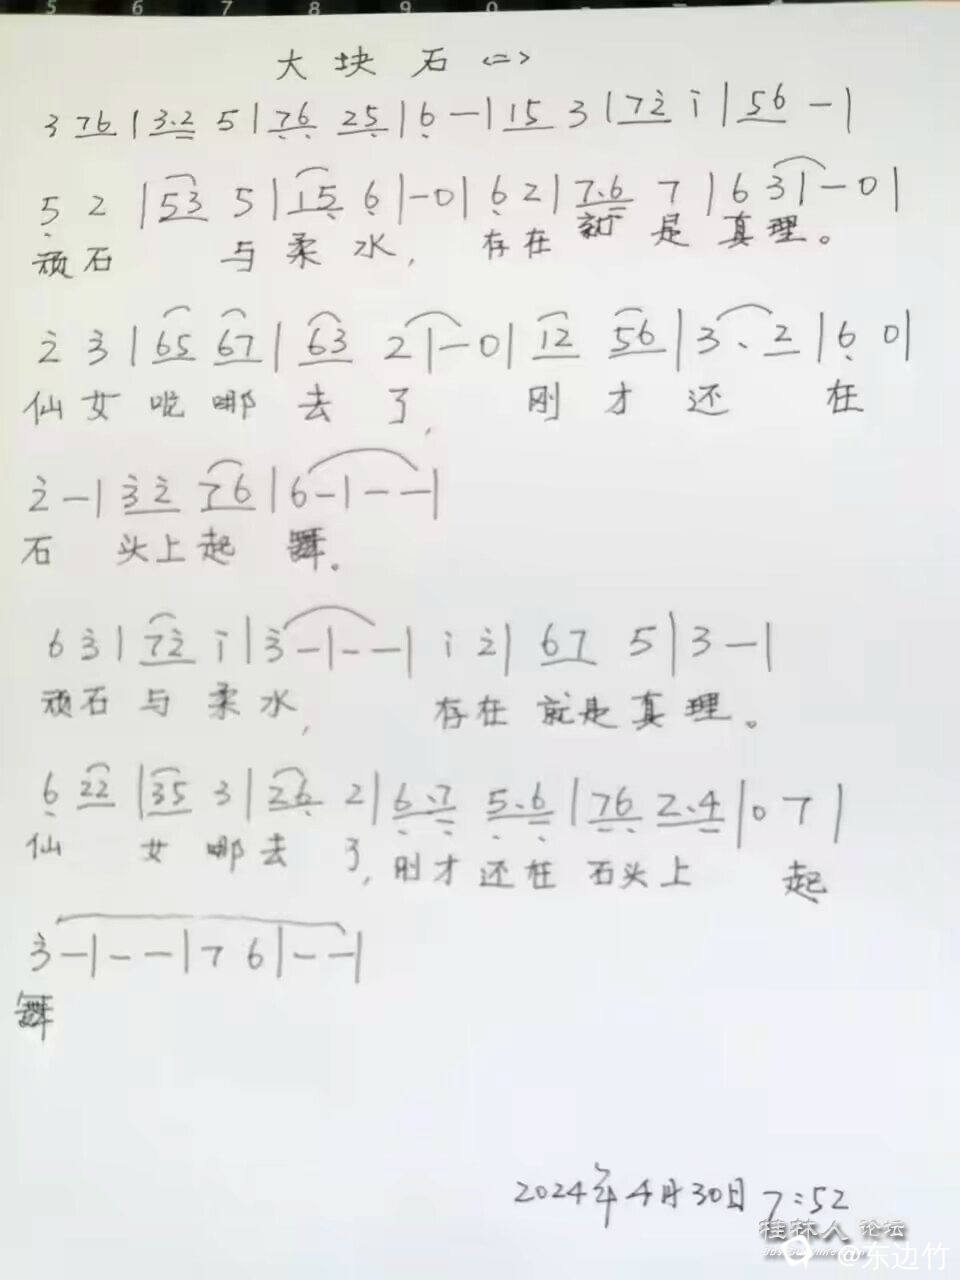 5 6 7 8 9 0
大块石<二>
3 76 | 3.2 5 | 76 25 | 6 — | 15 3 | 72 i | 56 — |
5 2 | 53 5 | 15 6 | — 0 | 6 2 | 7.6 7 | 6 3 | — 0 |
顽石 与柔水, 存在就是真理。
2 3 | 65 67 | 63 2 | — 0 | 12 56 | 3 . 2 | 6 0 |
仙女呢哪去了, 刚才还在
2 — | 32 76 | 6 — | — — |
石 头上起舞。
6 3 | 72 i | 3 — | — — | i 2 | 67 5 | 3 — |
顽石与柔水, 存在就是真理。
6 22 | 35 3 | 26 2 | 6.7 5.6 | 76 2.4 | 0 7 |
仙 女哪去了, 刚才还在石头上 起
3 — | — — | 7 6 | — — |
舞
2024年4月30日 7:52
桂林人论坛
@东边竹